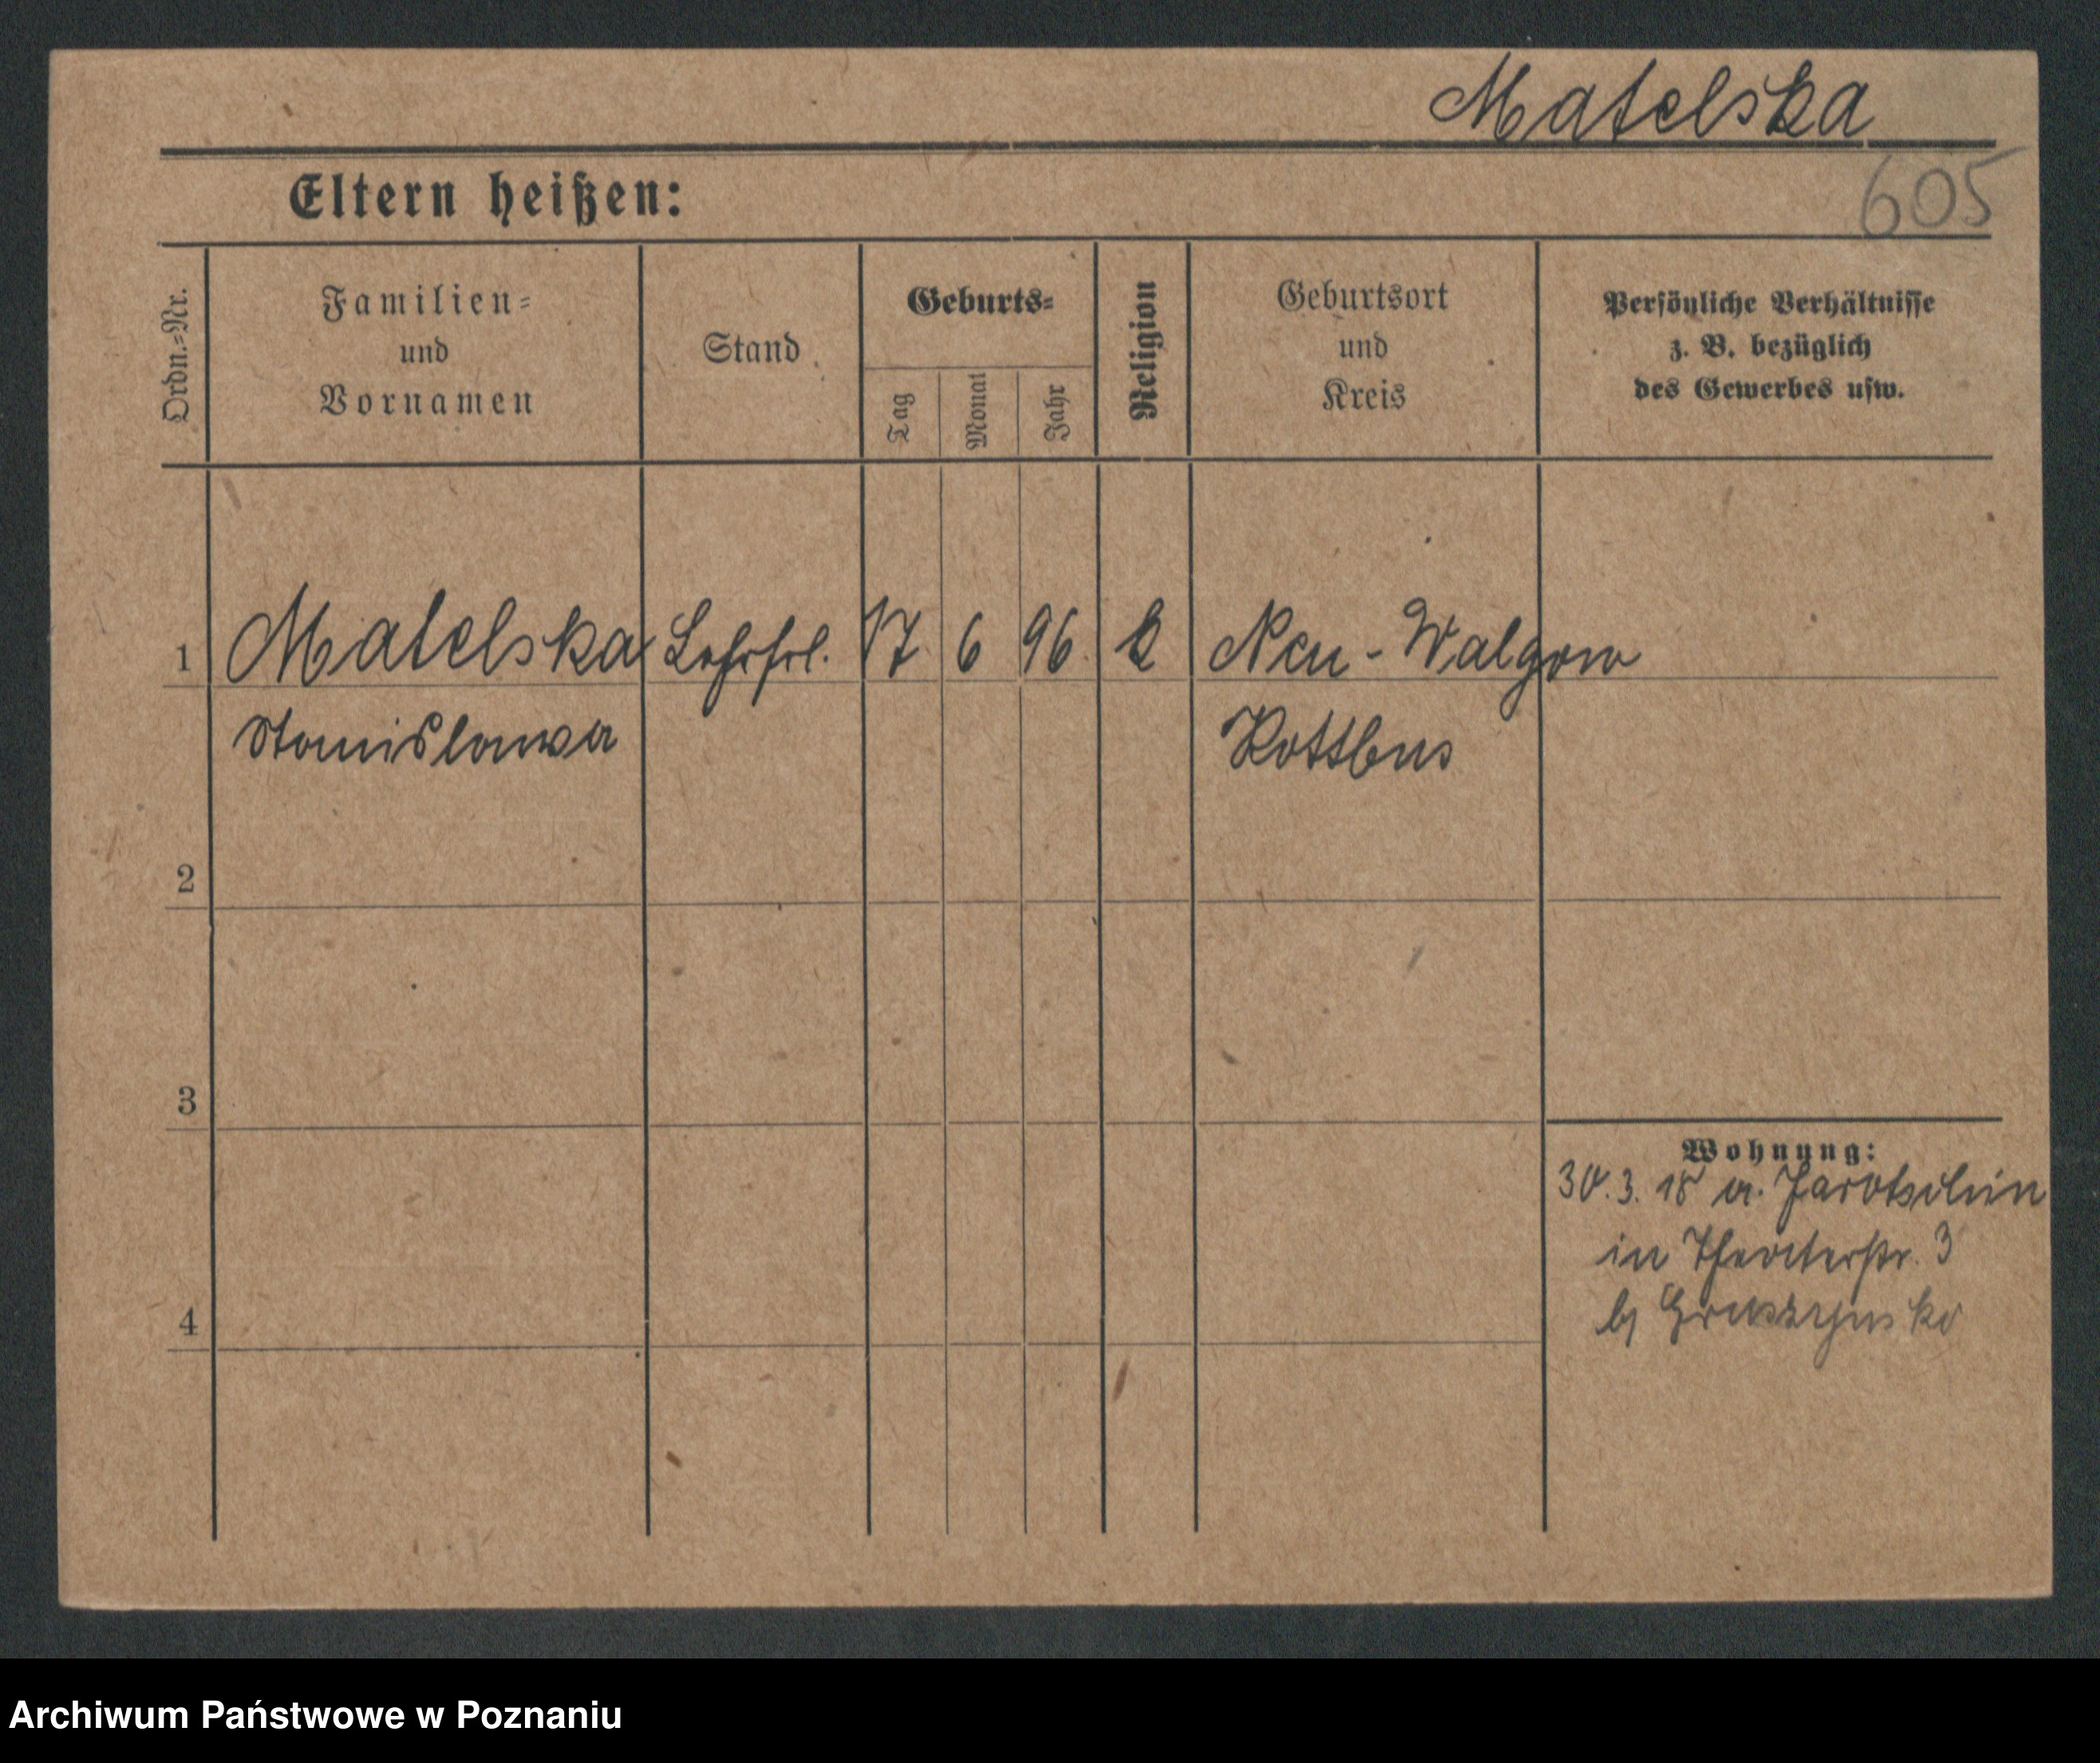 Matelska
Eltern heißen:
605
Ordn.-Nr.
Familien-
und
Vornamen
Stand
Geburts-
Tag
Monat
Jahr
Religion
Geburtsort
und
Kreis
Persönliche Verhältnisse
z. B. bezüglich
des Gewerbes usw.
1 Matelska Lehrfrl. 17 6 96 k Neu-Walgow
Stanislawa Kottbus
2
3
4
Wohnung:
30.3.18 a. Jarotschin
in Theaterstr. 3
b/
Archiwum Państwowe w Poznaniu